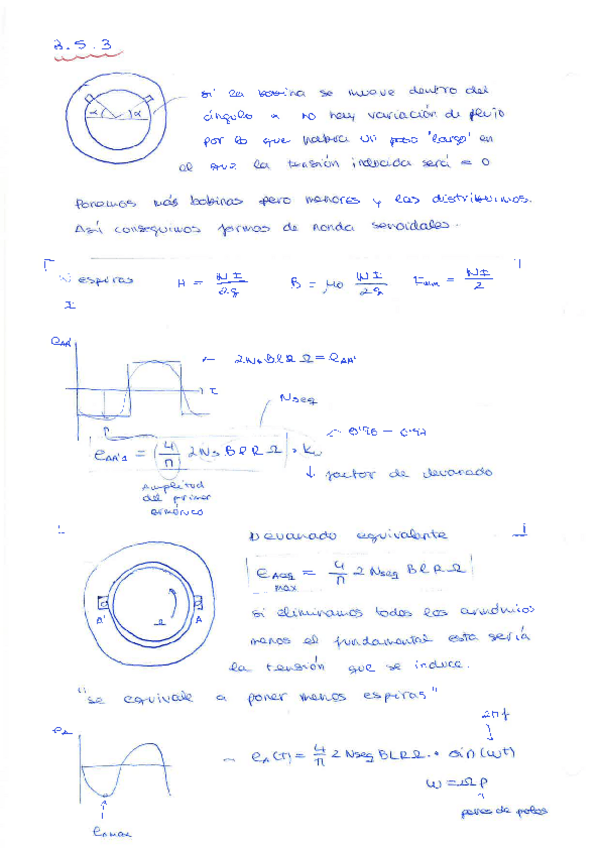 2.5.3
si la bobina se mueve dentro del
ángulo α no hay variación de flujo
por lo que habrá un paso "largo" en
el que la tensión inducida será = 0
α α
Ponemos más bobinas pero menores y las distribuimos.
Así conseguimos formas de honda senoidales.
N espiras H = NI/2g B = μ0 NI/2g Fmm = NI/2
I
eAA'
← 2Ns B l R Ω = eAA'
t
Nseq
eAA'1 = (4/π 2Ns B l R Ω) · kw
↓ factor de devanado
Amplitud
del primer
armónico
Devanado equivalente
eAeq = 4/π 2 Nseq B l R Ω
max
A' Ω A
si eliminamos todos los armónicos
menos el fundamental esta sería
la tensión que se induce.
"se equivale a poner menos espiras"
2πf
eA
eA(t) = 4/π 2 Nseq B l R Ω · sin(ωt)
ω = Ω p
pares de polos
eAmax